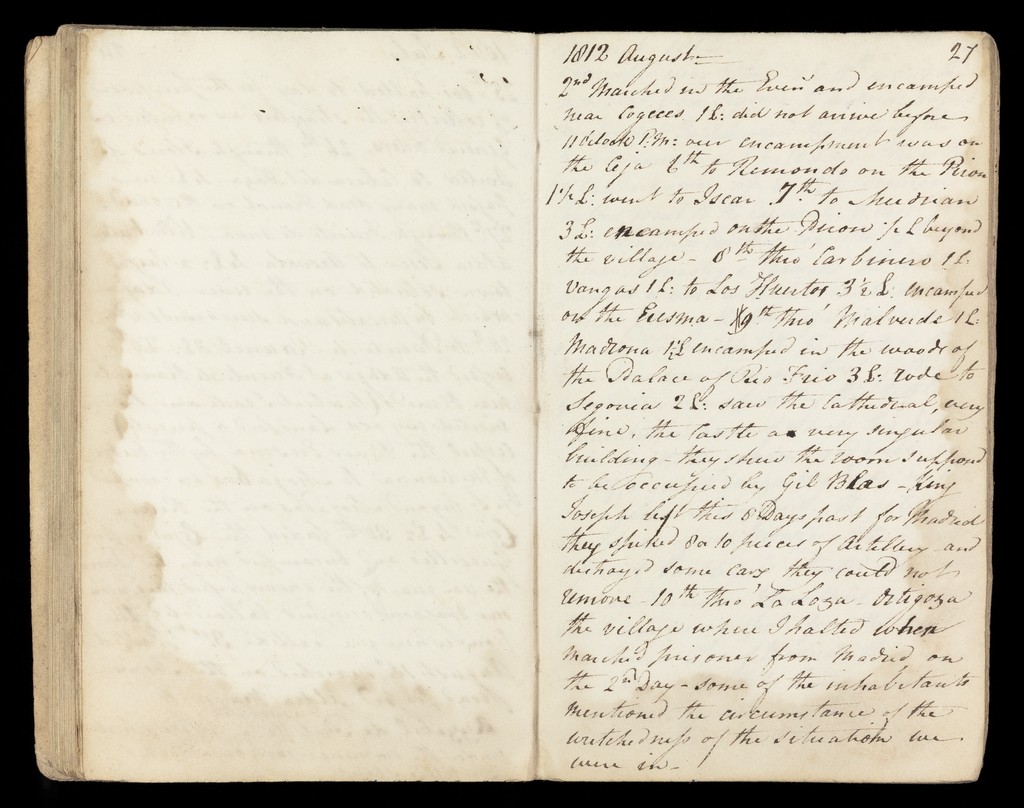 1812 August 27
2nd Marched in the Even and encamped
near Cogeces 1 L: did not arrive before
11 oClock P:M: our encampment was on
the Ceja 6th to Remondo on the Piron
1½ L: went to Iscar 7th to Mudrian
3 L: encamped on the Piron ½ L beyond
the village - 8th thro' Carbinero 1 L:
Vangas 1 L: to Los Huertos 3½ L: encamped
on the Eresma - 9th thro Malverde 1 L:
Madrona 1½ L encamped in the woods of
the Palace of Rio Frio 3 L: rode to
Segovia 2 L: saw the Cathedral, very
fine, the Castle a very singular
building - they shew the room supposed
to be occupied by Gil Blas - King
Joseph left this 8 Days past for Madrid
they spiked 8 a 10 pieces of Artillery and
destroyd some cars they could not
remove - 10th thro' La Loza - Ortigoza
the village where I halted when
marched prisoner from Madrid on
the 2nd Day - some of the inhabitants
mentioned the circumstance of the
wretchedness of the situation we
were in -